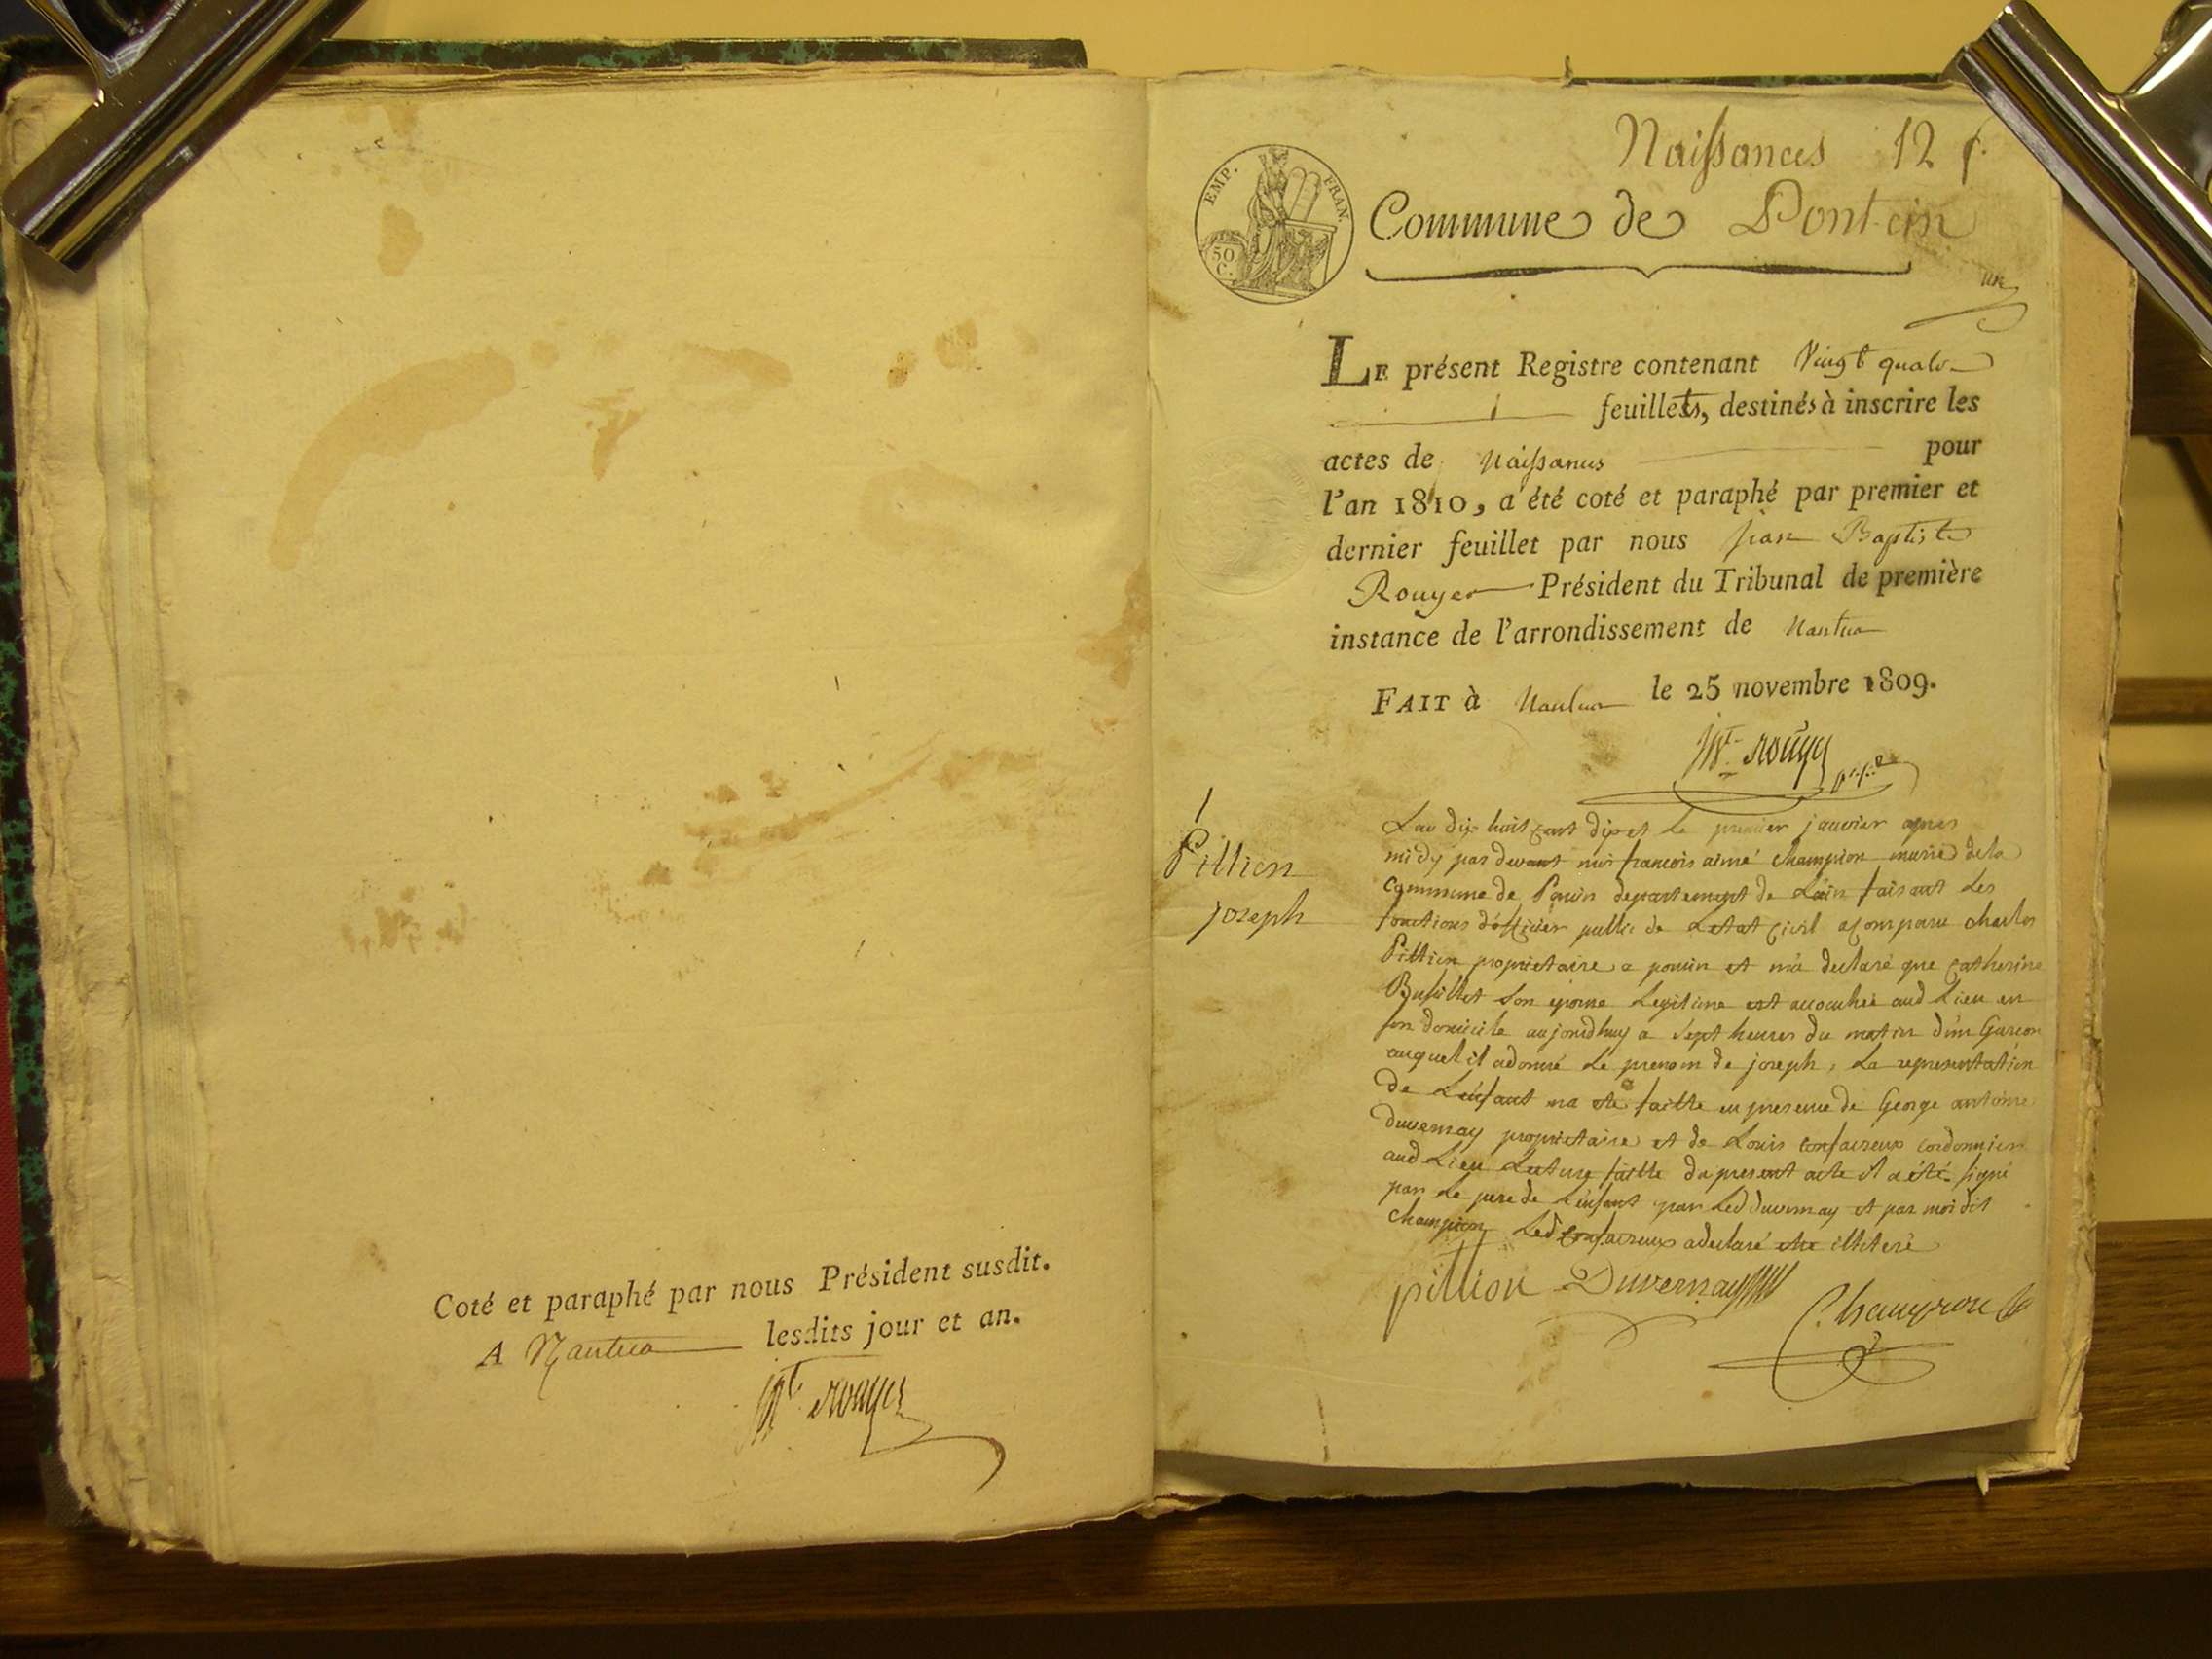 Coté et paraphé par nous Président susdit.
A Nantua lesdits jour et an.
Jn Bte rouyer
Naissances 12 f.
EMP. FRAN.
50
C.
Commune de Pont-cin
un
LE présent Registre contenant Vingt quatre
feuillets, destinés à inscrire les
actes de Naissances pour
l'an 1810, a été coté et paraphé par premier et
dernier feuillet par nous jean Baptiste
Rouyer Président du Tribunal de première
instance de l'arrondissement de Nantua
FAIT à Nantua le 25 novembre 1809.
rouyer
1
Pittion
joseph
Lan dix huit cent dix et le premier janvier apres
midy par devant moi francois aimé champion maire de la
Commune de Poncin departement de Lain faisant Les
fonctions d'officier public de Letat civil a comparu charles
Pittion proprietaire a poncin et m'a declaré que catherine
son epouse Legitime est accouchée aud Lieu en
son domicile aujourdhuy a sept heures du matin d'un Garcon
auquel il a donné Le prenom de joseph, La representation
de L'enfant ma été faitte en presence de George antoine
duvernay proprietaire et de Louis confaireux cordonnier
aud Lieu Lecture faitte du present acte il a été signé
par Le pere de L'enfant par Led duvernay et par moi dit
champion Led confaireux a declaré etre illiteré
pittion Duvernay
Champion